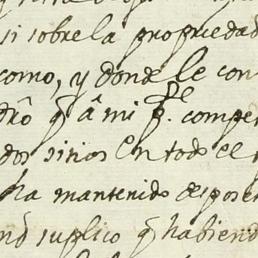 si sobre la propriedad
como, y donde le con
dr̃o q̃ â mi p.te compe
dos sitios En todo el
ha mantenido desposei
suplico q̃ habiend